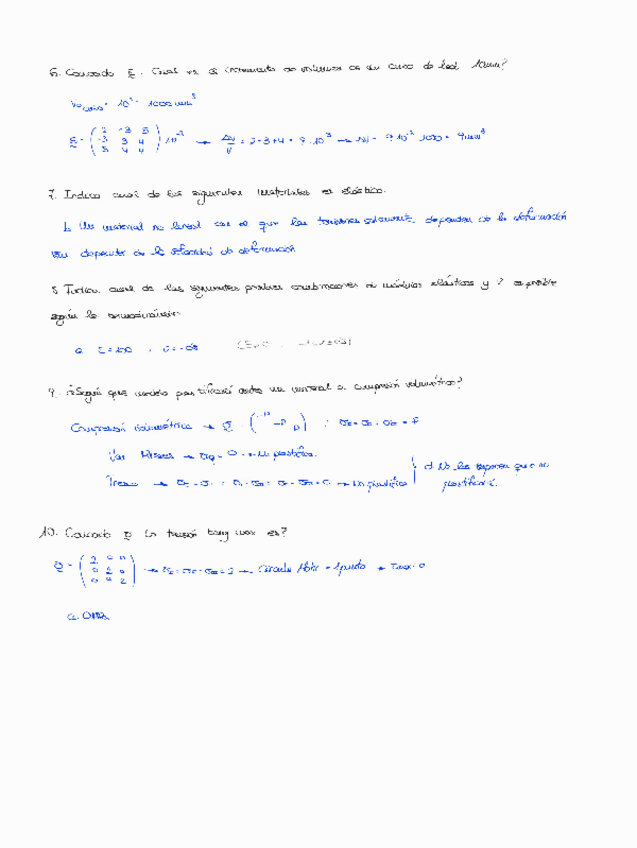 6. Conocido ε. Cual es el incremento de volumen de un cubo de lado 10mm?
Vo cubo = 10³ = 1000 mm³
ε = ( 2 -3 5 / -3 3 4 / 5 4 4 ) 10⁻³ → ΔV/V = 2+3+4 = 9·10⁻³ → ΔV = 9·10⁻³·1000 = 9mm³
7. Indica cual de los siguientes materiales es elástico.
b. Un material no lineal con el que las tensiones solamente dependen de la deformación
no dependen de la velocidad de deformación
8. Indica cual de las siguientes posibles combinaciones de módulos elásticos y ν es posible
según la termodinámica.
a. E=100 , ν=-0.5
9. ¿Según que modelo plastificará antes un material a compresión volumétrica?
Compresión volumétrica → σ = ( -P -P -P ) ; σI = σII = σIII = P
Von Mises → σeq = 0 → no plastifica.
Tresca → → No plastifica
d. No se espera que
plastificará.
10. Conocido σ la tensión tang max es?
σ = ( 2 0 0 / 0 2 0 / 0 0 2 ) → σI = σII = σIII = 2 → Círculo Mohr = 1 punto → τmax = 0
a. 0MPa